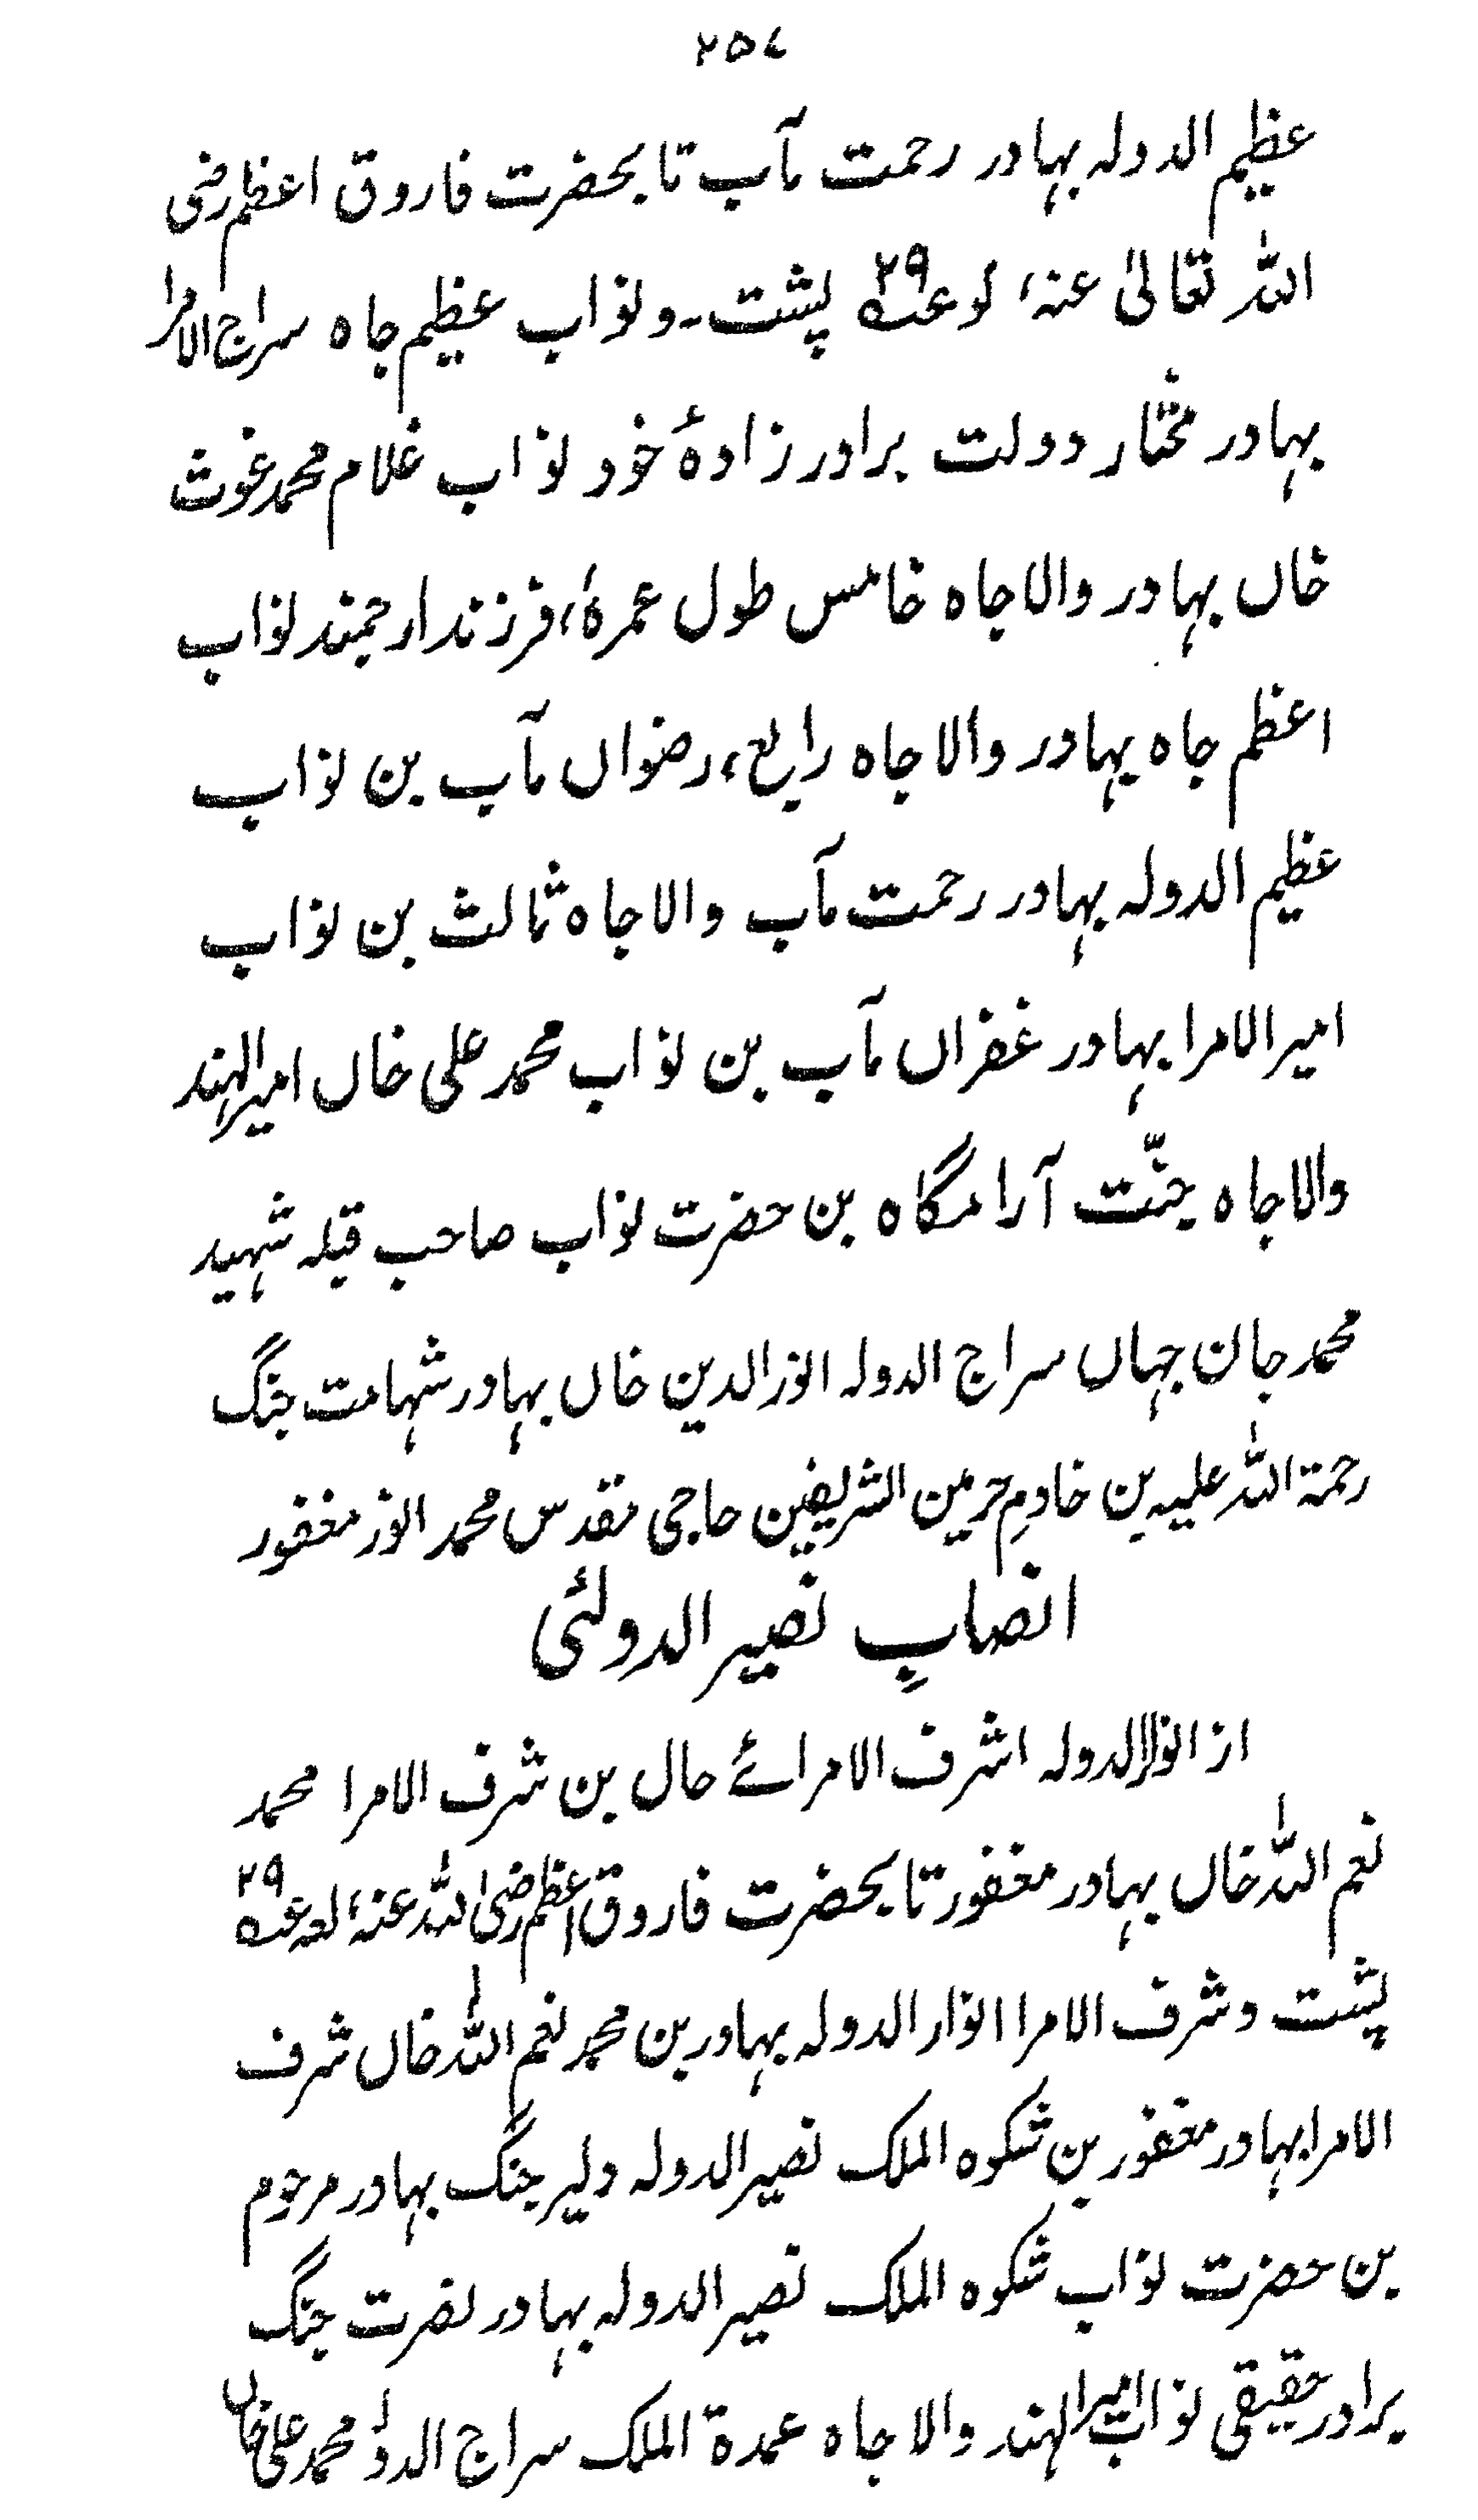 ۲۵۷
عظیم الدولہ بہادر رحمت مآب تا بحضرت فاروق اعظم رضی
اللہ تعالیٰ عنہ، ۲۹ پشت۔ و نواب عظیم جاہ سراج الامرا
بہادر مختار دولت برادر زادۂ خود نواب غلام محمد غوث
خاں بہادر والاجاہ خامس طول عمرہٗ، فرزند ارجمند نواب
اعظم جاہ بہادر والاجاہ رابع، رضواں مآب بن نواب
عظیم الدولہ بہادر رحمت مآب والاجاہ ثالث بن نواب
امیر الامرا بہادر غفراں مآب بن نواب محمد علی خاں امیر الہند
والاجاہ جنّت آرامگاہ بن حضرت نواب صاحب قبلہ شہید
محمد جان جہاں سراج الدولہ انور الدین خاں بہادر شہامت جنگ
رحمۃ اللہ علیہ بن خادمِ حرمین الشریفین حاجی مقدس محمد انور مغفور
انصابِ نصیر الدولئی
از انوار الدولہ اشرف الامرائے حال بن شرف الامرا محمد
نعم اللہ خاں بہادر مغفور تا بحضرت فاروق اعظم رضی اللہ عنہ، ۲۹
پشت و شرف الامرا انوار الدولہ بہادر بن محمد نعم اللہ خاں شرف
الامرا بہادر مغفور بن شکوہ الملک نصیر الدولہ دلیر جنگ بہادر مرحوم
بن حضرت نواب شکوہ الملک نصیر الدولہ بہادر نصرت جنگ
برادر حقیقی نواب امیر الہند والاجاہ عمدۃ الملک سراج الدولہ محمد علی خاں